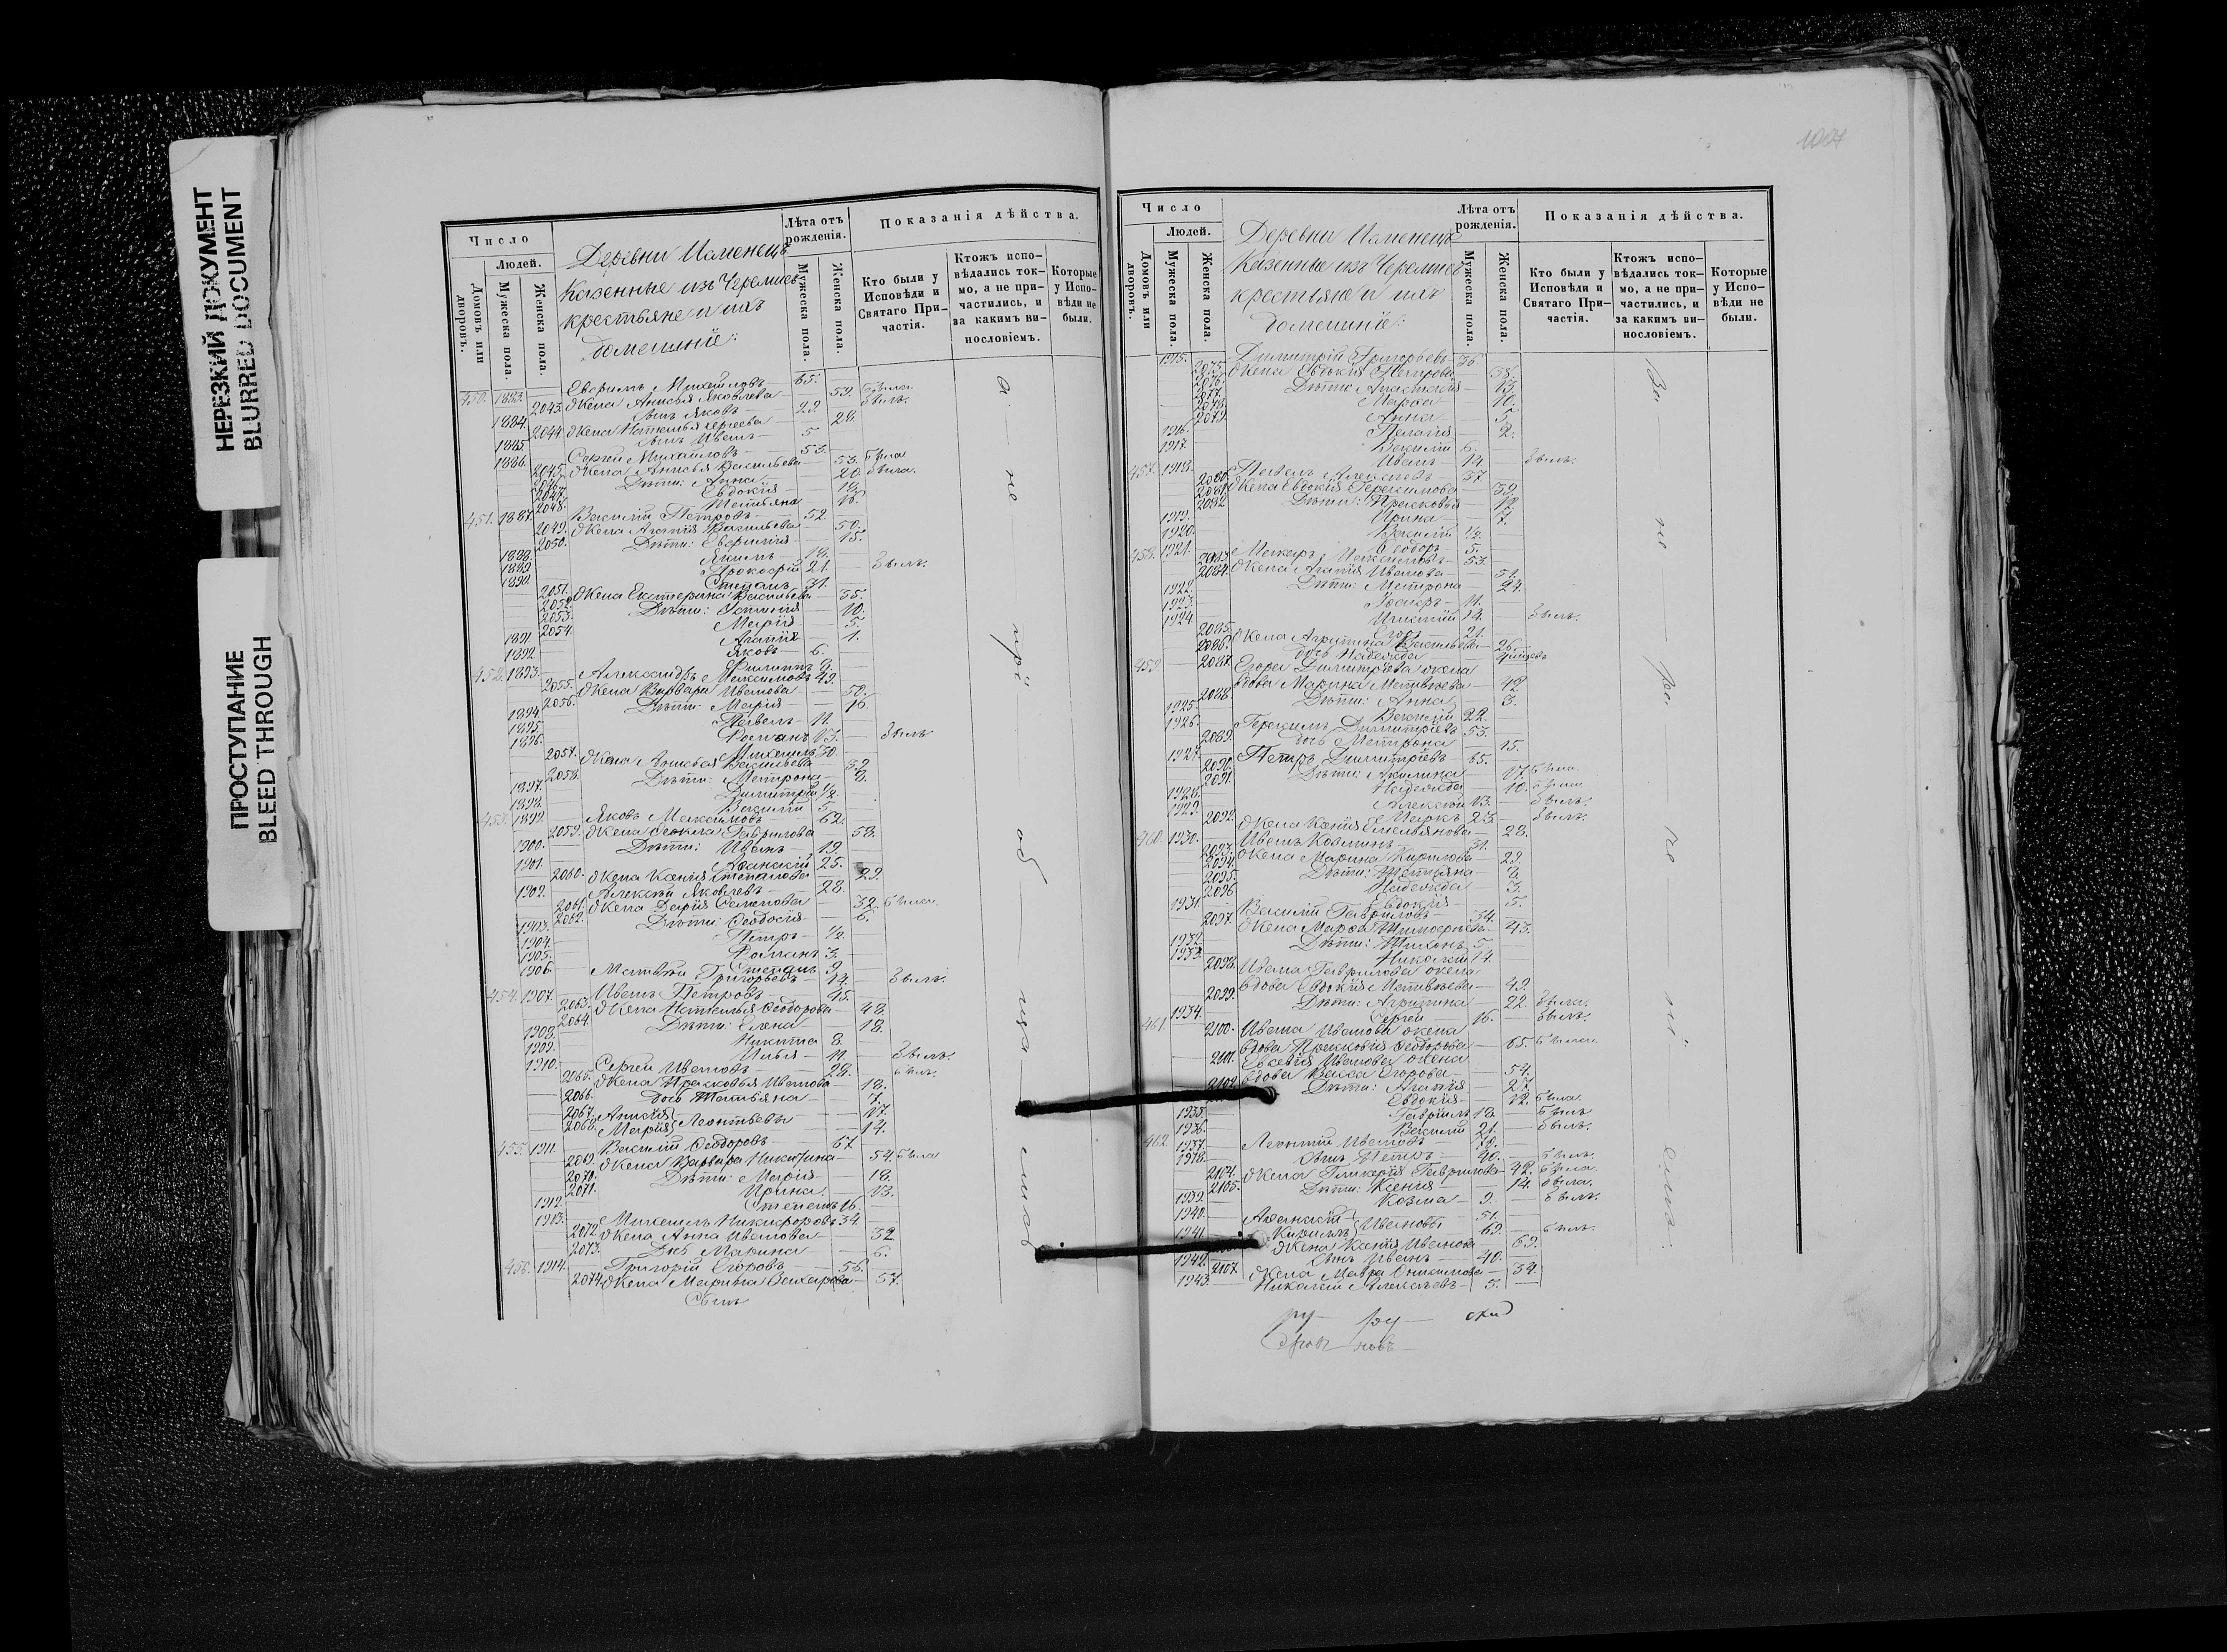 НЕРЕЗКИЙ ДОКУМЕНТ
BLURRED DOCUMENT
ПРОСТУПАНИЕ
BLEED THROUGH
Число
Людей.
Домовъ или дворовъ.
Мужеска пола.
Женска пола.
Деревни
Казенные изъ Черемисъ
крестьяне и ихъ
домашніе:
Лѣта отъ рожденія.
Мужеска пола.
Женска пола.
Показанія дѣйства.
Кто были у Исповѣди и Святаго Причастія.
Ктожъ исповѣдались токмо, а не причастились, и за какимъ винословіемъ.
Которые у Исповѣди не были.
450. 1883. Михайловъ 65.
2043. Жена Анисья Яковлева 59. была
1884. сынъ Яковъ 29. былъ.
2044. Жена Наталья Сергеева 28.
1885. сынъ Иванъ 5
1886. Сергей Михайловъ 53.
2045. Жена Васильева 53. была
2046. Дѣти: Анна 20. была.
2047. Евдокія 18.
2048. Татьяна
451. 1887. Василій Петровъ 52.
2049. Жена Агапія Васильева 50.
2050. Дѣти: 15.
1888.
1889. Прокофій 21. былъ.
1890. Степанъ 31.
2051. Жена Екатерина Васильева 35.
2052. Дѣти: 10.
2053. Марія 5.
2054. Агапія 1.
1891. Яковъ 6.
1892. Филиппъ
452. 1893. Александръ Максимовъ 49.
2055. Жена Варвара Иванова 50.
2056. Дѣти: Марія 16.
1894. Павелъ 11.
1895. Романъ 13. былъ
1896. Михаилъ 30.
2057. Жена Васильева 32
2058. Дѣти: Матрона 8.
1897. Димитрій 1/2.
1898. Василій 5.
453. 1899. Яковъ Максимовъ 62.
2059. Жена Ѳекла Гаврилова 58.
1900. Дѣти: Иванъ 19.
1901. Аѳанасій 25.
2060. Жена Ксенія Степанова 29.
1902. Алексѣй Яковлевъ 28.
2061. Жена Дарія Семенова 32. была.
2062. Дѣти: Ѳеодосія 6.
1903. Петръ 1/2.
1904. Романъ 3.
1905. Степанъ 9.
1906. Матвѣй Григорьевъ 14. былъ.
454. 1907. Иванъ Петровъ 45.
2063. Жена Наталья Ѳеодорова 48.
2064. Дѣти: Елена 18.
1908. Никита 8.
1909. Илья 11. былъ.
1910. Сергей Ивановъ 28. былъ.
2065. Жена Прасковья Иванова 18.
2066. дочь Татьяна 7.
2067. 17.
2068. Марія Леонтьевы 14.
455. 1911. Василій Ѳеодоровъ 67.
2069. Жена Варвара Никитина 54. была
2070. Дѣти: Марія 18.
2071. Ирина 13.
1912. Степанъ 16.
1913. Михаилъ Никифоровъ 34.
2072. Жена Анна Иванова 32
2073. Дочь Марина 6.
456. 1914. Григорій Егоровъ 56.
2074. Жена Марина Захарова 57.
Сынъ
а — не — прі — об — ща — лись
1004
Число
Людей.
Домовъ или дворовъ.
Мужеска пола.
Женска пола.
Деревни
Казенные изъ Черемисъ
крестьяне и ихъ
домашніе:
Лѣта отъ рожденія.
Мужеска пола.
Женска пола.
Показанія дѣйства.
Кто были у Исповѣди и Святаго Причастія.
Ктожъ исповѣдались токмо, а не причастились, и за какимъ винословіемъ.
Которые у Исповѣди не были.
1915. Димитрій Григорьевъ 36.
2075. Жена Евдокія Петрова 38.
2076. Дѣти: Анастасія 13.
2077. Марѳа 10.
2078. Анна 5.
2079. Пелагія 2.
1916. Василій 6.
1917. Иванъ 14. былъ.
457. 1918. Павелъ Алексѣевъ 37.
2080. Жена Евдокія Герасимова 39.
2081. Дѣти: Прасковья 12.
2082. Ирина 7.
1919. Василій 1/2.
1920. Ѳеодоръ 5.
458. 1921. Макаръ Максимовъ 53.
2083. Жена Агапія Иванова 51.
2084. Дѣти: Матрона 24.
1922. 11.
1923. 14. былъ.
1924. Егоръ 21.
2085. Жена Агрипина Васильева 26.
2086. дочь Надежда
459. 2087. Егора Димитріева жена
вдова Марина Матвѣева 42.
2088. Дѣти: Анна 3.
1925. Василій 22.
1926. Герасимъ Димитріевъ 53.
2089. дочь Матрона 15.
1927. Петръ Димитріевъ 65.
2090. Дѣти: Акилина 17. была
2091. Надежда 10. была
1928. Алексѣй 13. былъ.
1929. Маркъ 23. былъ.
2092. Жена Ксенія Емельянова 28.
460. 1930. Иванъ Козминъ 31.
2093. Жена Марина Кирилова 29.
2094. Дѣти: Татьяна 8.
2095. Надежда 3.
2096. Евдокія 5.
1931. Василій Гавриловъ 34.
2097. Жена Марѳа Тимофеева 43.
1932. Дѣти: Тихонъ 5
1933. Николай 14.
2098. Гаврилова жена
вдова Евдокія Матвѣева 49.
2099. Дѣти: Агрипина 22. была.
1934. Сергей 16. былъ.
461. 2100. Ивана Иванова жена
вдова Прасковія Ѳеодорова 65. была.
2101. Евсевія Иванова жена
вдова Васса Егорова 54.
2102. Дѣти: Агапія 27.
Евдокія 12. была.
1935. Гавріилъ 18. былъ
1936. Василій 21. былъ.
462. 1937. Леонтій Ивановъ 70.
1938. сынъ Петръ 40. былъ.
2104. Жена Гликерія Гаврилова 42. была.
2105. Дѣти: Ксенія 14. была.
1939. Козма 9. былъ.
1940. Аѳанасій 51.
1941. Кирилъ Ивановы 69. былъ.
Жена Ксенія Иванова 69.
1942. сынъ Иванъ 40.
2107. Жена Мавра Онисимова 34.
1943. Николай Алексѣевъ 5.